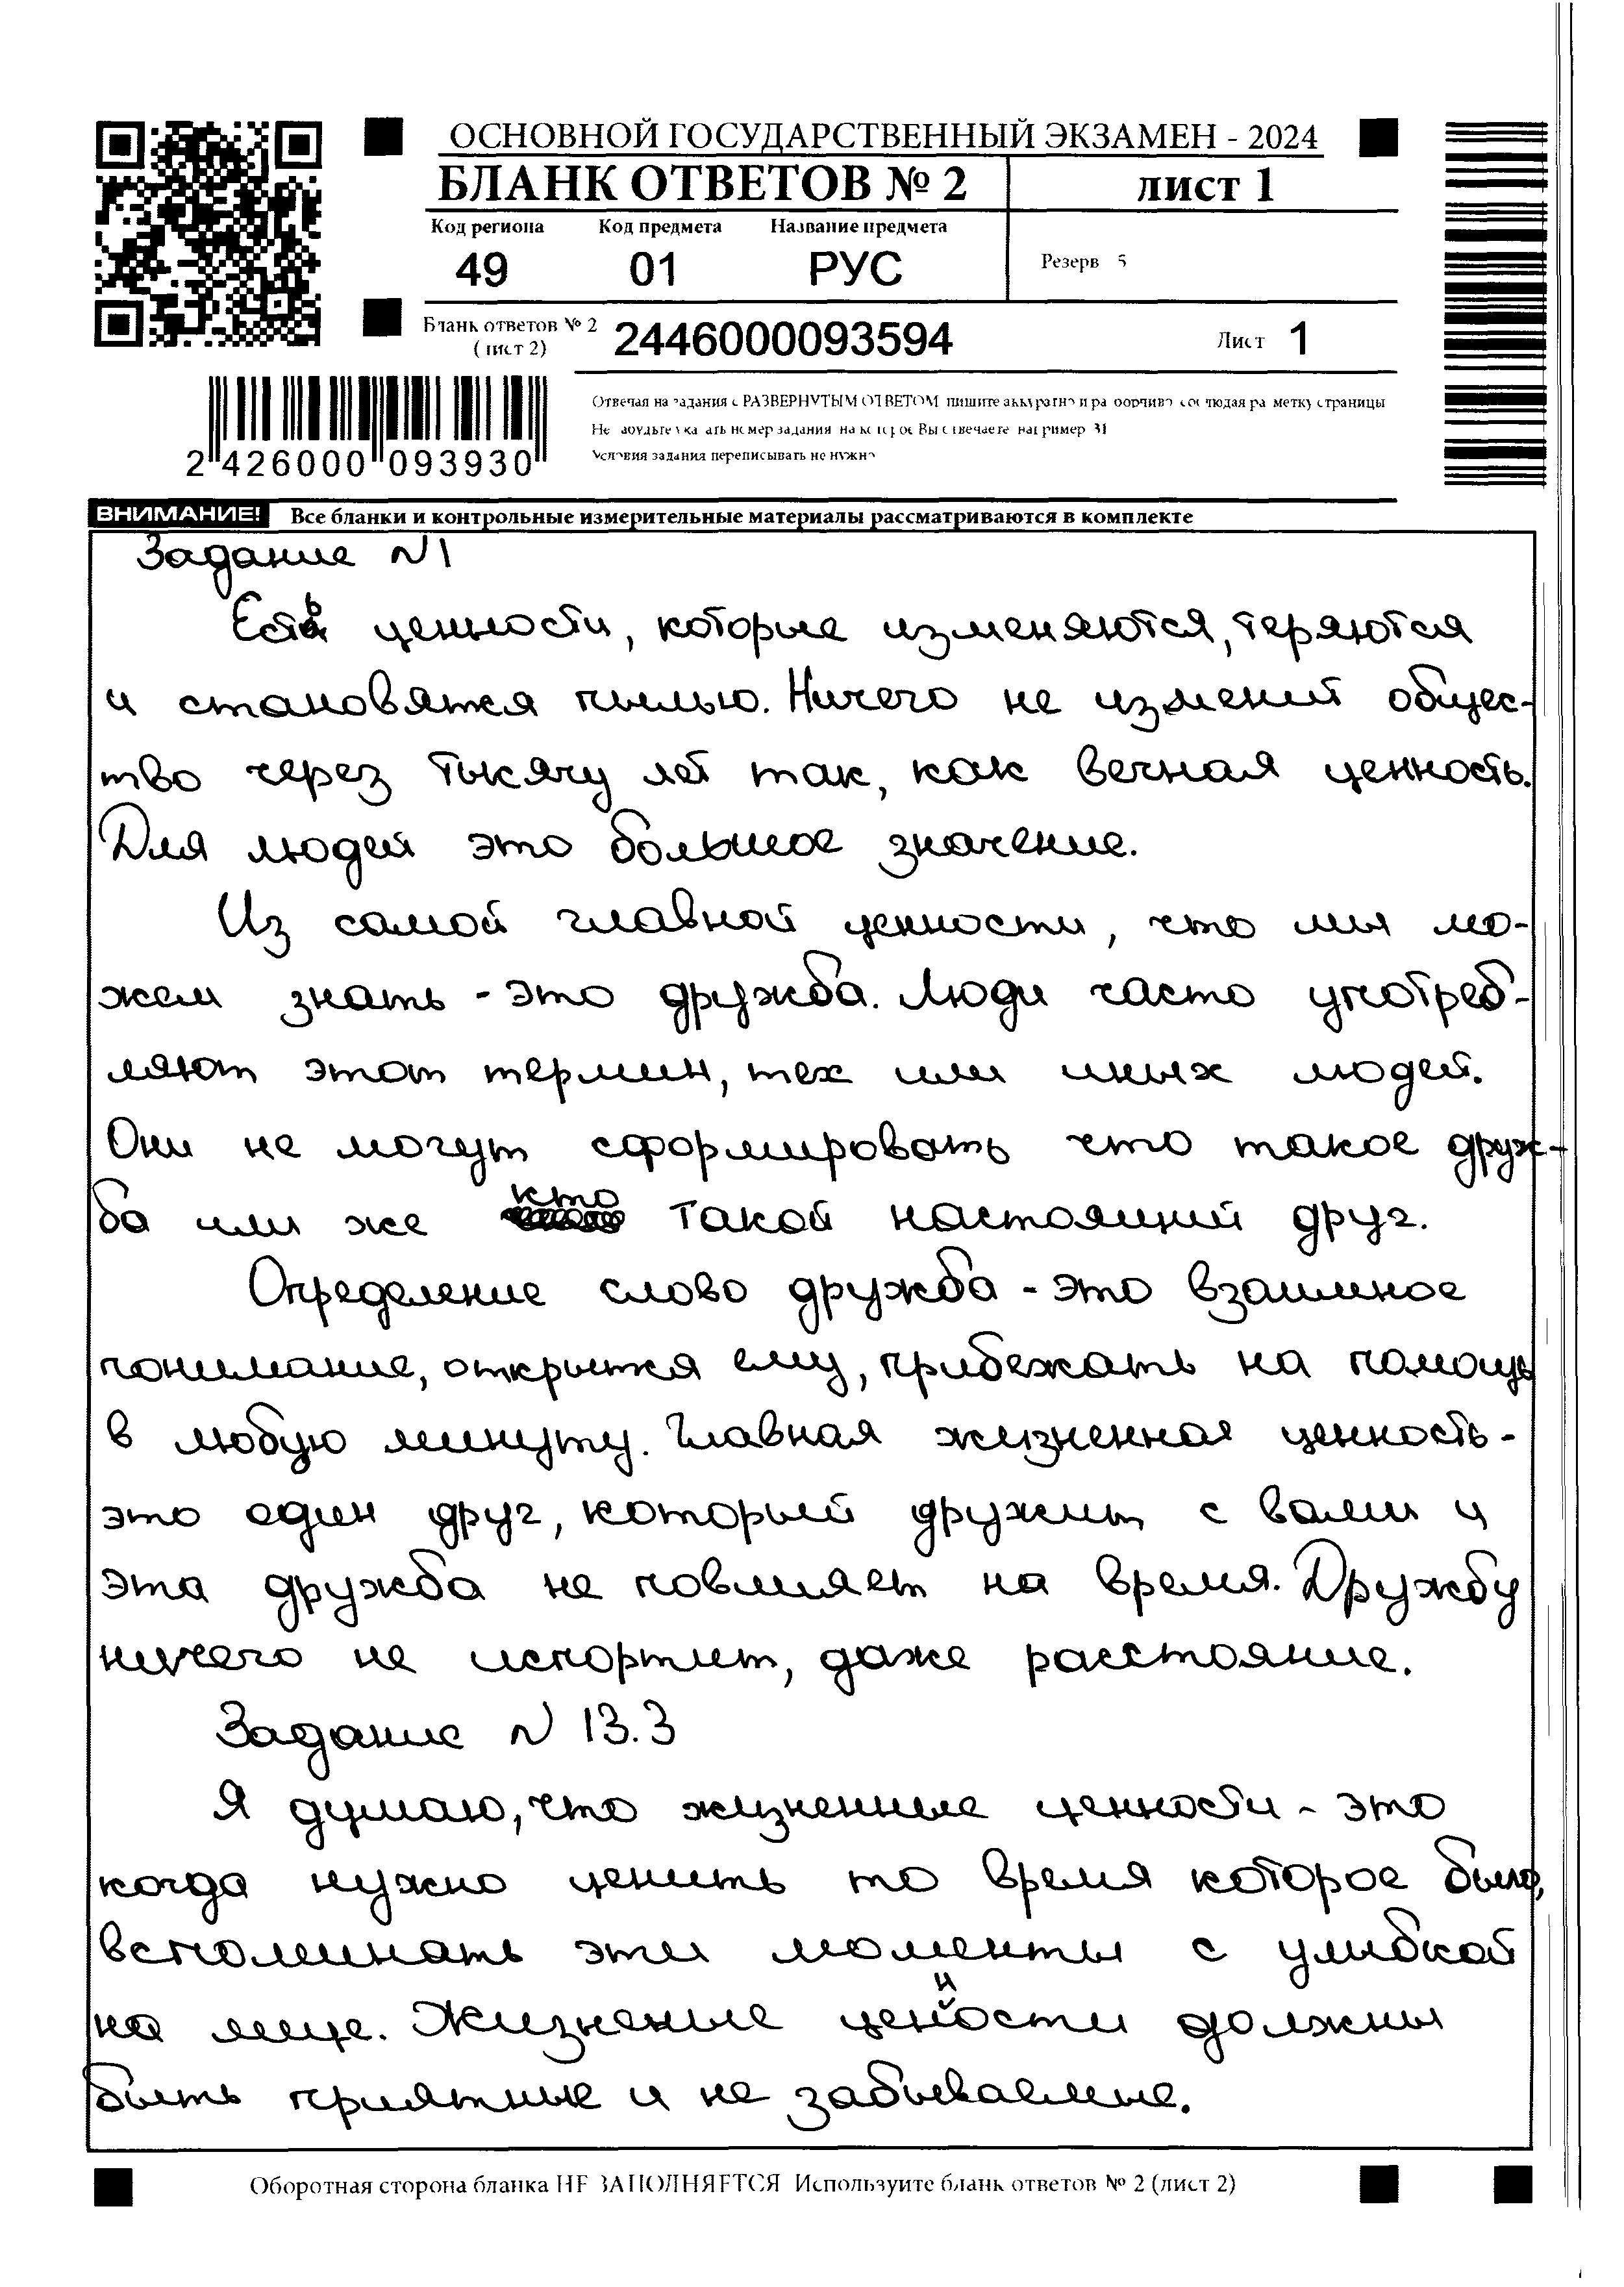 ОСНОВНОЙ ГОСУДАРСТВЕННЫЙ ЭКЗАМЕН - 2024
БЛАНК ОТВЕТОВ № 2
лист 1
Код региона Код предмета Название предмета
49 01 РУС
Резерв 5
Бланк ответов № 2
(лист 2)
2446000093594
Лист 1
2 426000 093930
Отвечая на задания с РАЗВЕРНУТЫМ ОТВЕТОМ пишите аккуратно и разборчиво соблюдая разметку страницы
Не забудьте указать номер задания на который Вы отвечаете например 31
Условия задания переписывать не нужно
ВНИМАНИЕ! Все бланки и контрольные измерительные материалы рассматриваются в комплекте
Задание N1
Есть ценности, которые изменяются, теряются
и становятся пылью. Ничего не изменит общес-
тво через тысячу лет так, как вечная ценность.
Для людей это большое значение.
Из самой главной ценности, что мы мо-
жем знать - это дружба. Люди часто употреб-
ляют этот термин, тех или иных людей.
Они не могут сформировать что такое друж-
ба или же кто такой настоящий друг.
Определение слово дружба - это взаимное
понимание, открытся ему, прибежать на помощь
в любую минуту. Главная жизненная ценность -
это один друг, который дружит с вами и
эта дружба не повлияет на время. Дружбу
ничего не испортит, даже расстояние.
Задание N 13.3
Я думаю, что жизненные ценности - это
когда нужно ценить то время которое было,
вспоминать эти моменты с улыбкой
на лице. Жизненые ценности должны
быть приятные и не забываемые.
Оборотная сторона бланка НЕ ЗАПОЛНЯЕТСЯ Используйте бланк ответов № 2 (лист 2)